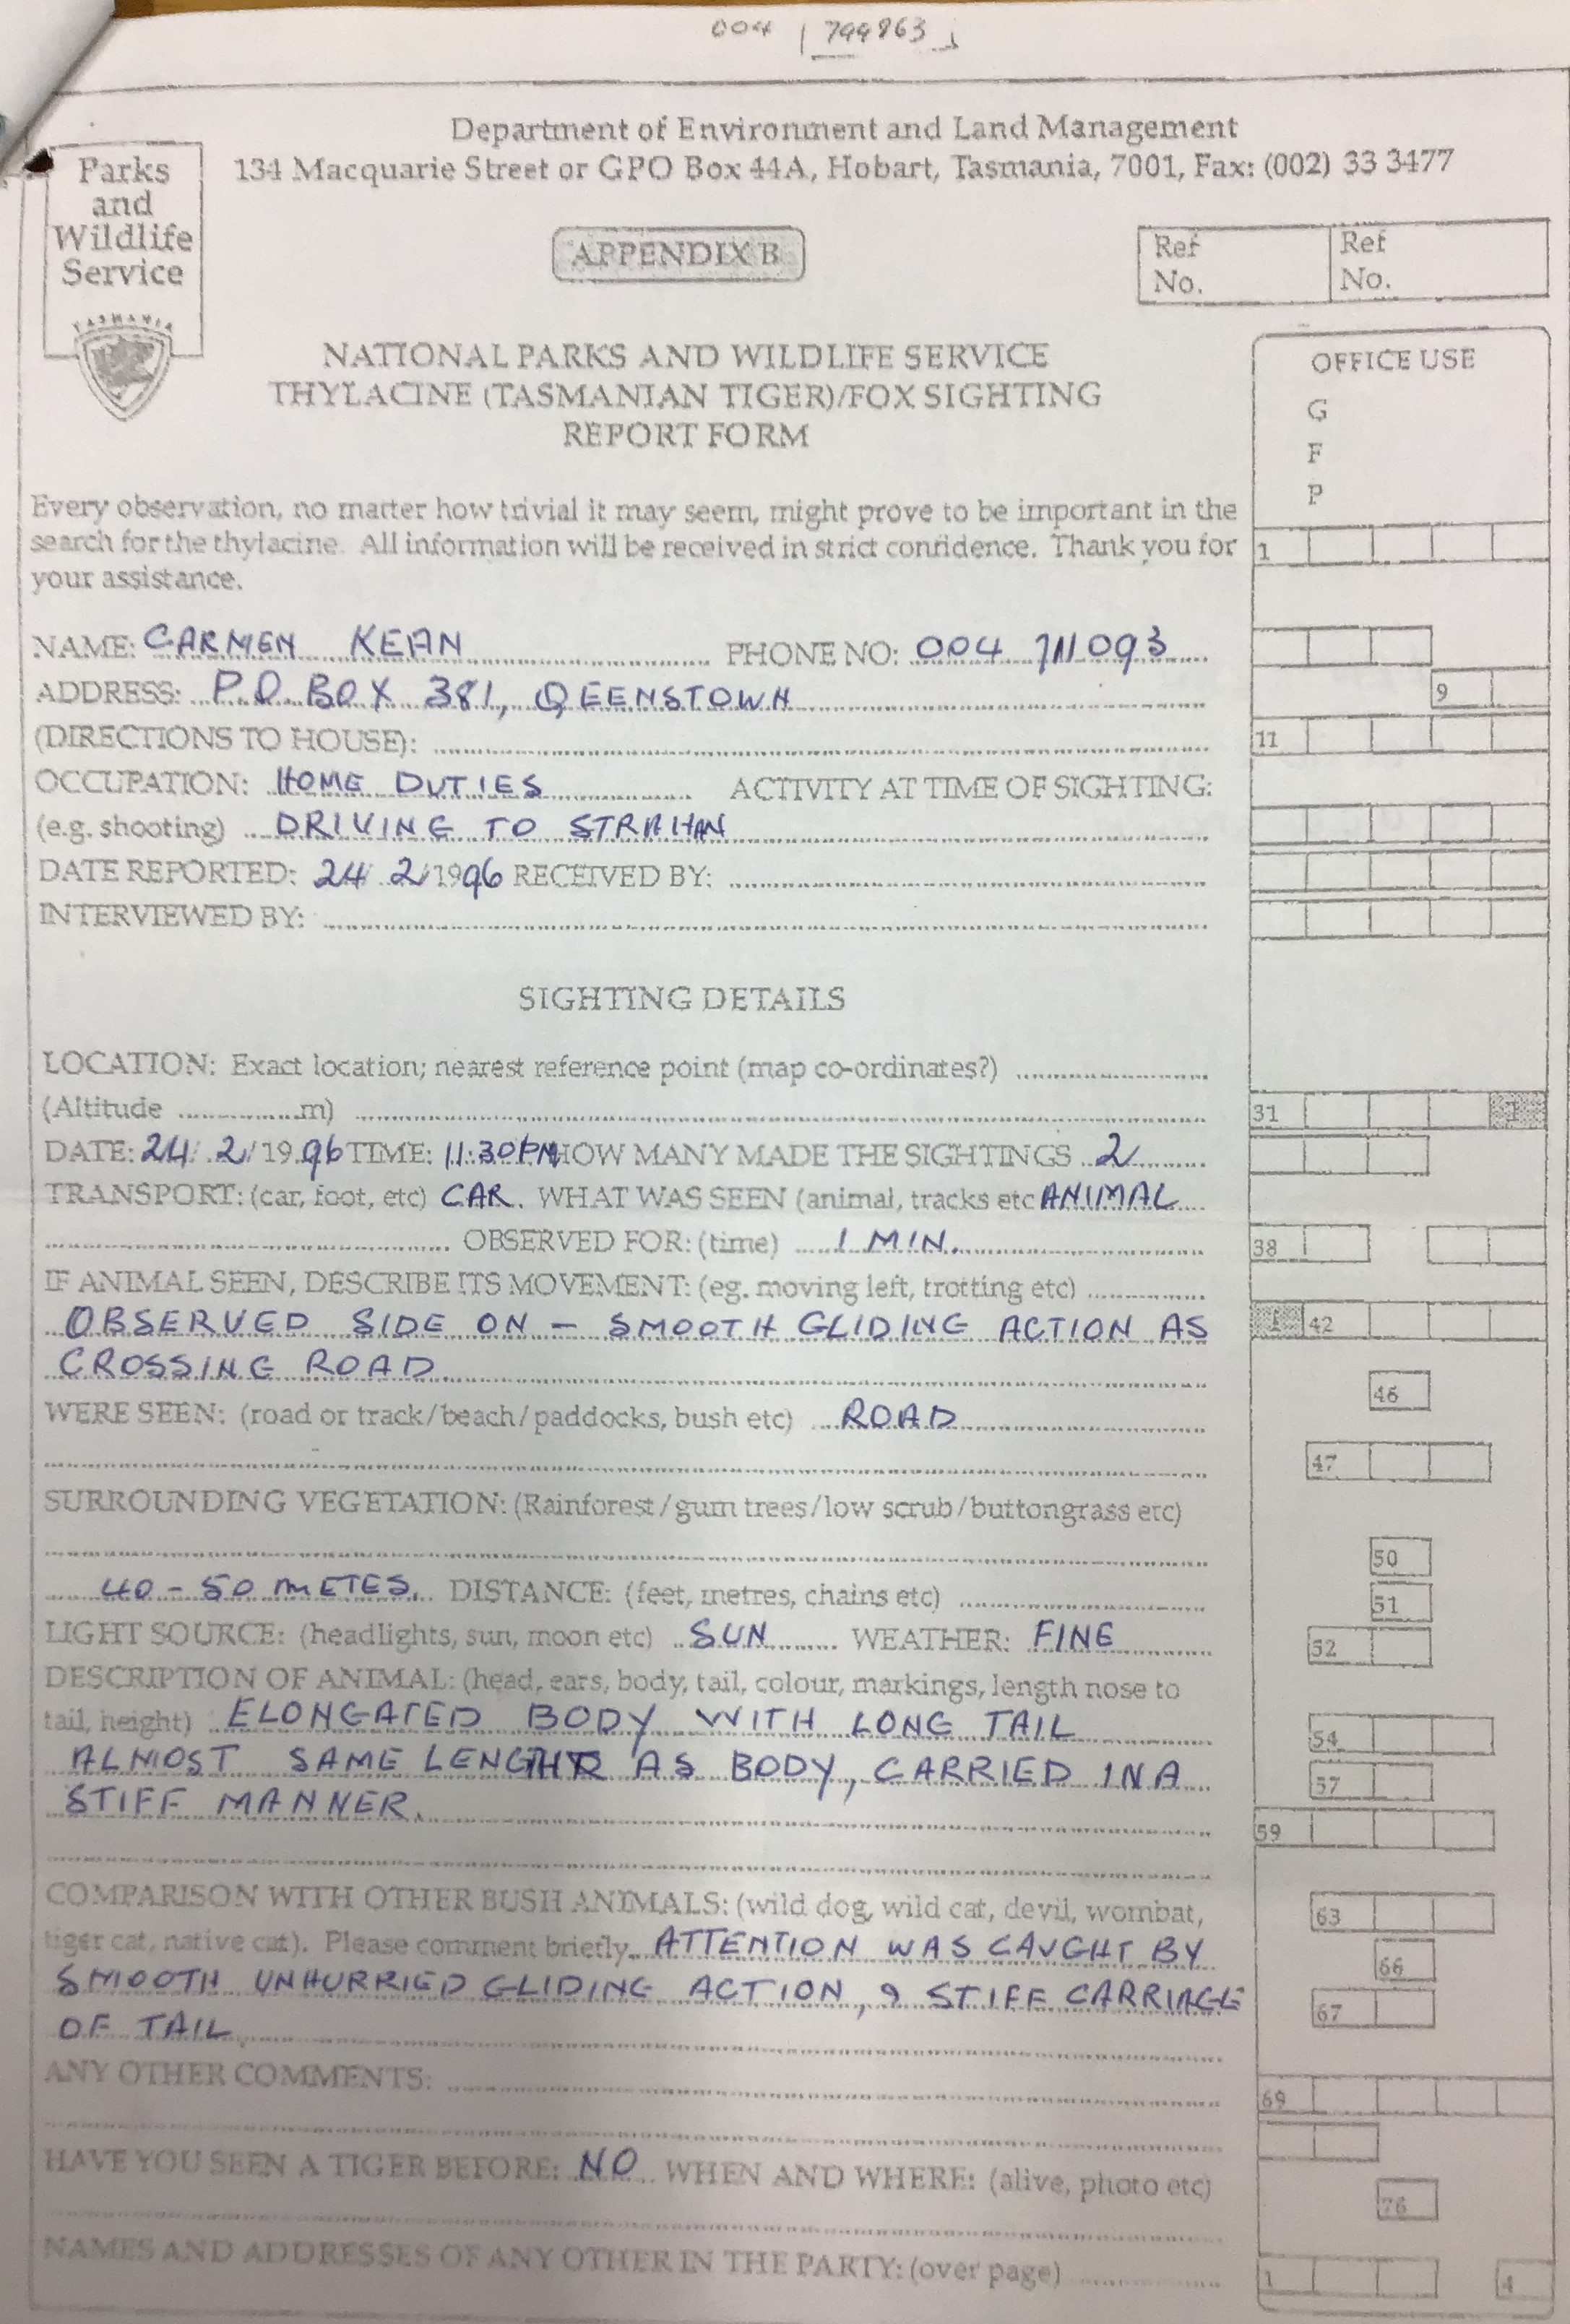 004 799863
Department of Environment and Land Management
134 Macquarie Street or GPO Box 44A, Hobart, Tasmania, 7001, Fax: (002) 33 3477
Parks
and
Wildlife
Service
TASMANIA
APPENDIX B
Ref No.
Ref No.
NATIONAL PARKS AND WILDLIFE SERVICE
THYLACINE (TASMANIAN TIGER)/FOX SIGHTING
REPORT FORM
OFFICE USE
G
F
P
Every observation, no matter how trivial it may seem, might prove to be important in the
search for the thylacine. All information will be received in strict confidence. Thank you for
your assistance.
1
NAME: CARMEN KEAN PHONE NO: 004 711093
ADDRESS: P.O. BOX 381, QEENSTOWN
9
(DIRECTIONS TO HOUSE):
11
OCCUPATION: HOME DUTIES ACTIVITY AT TIME OF SIGHTING:
(e.g. shooting) DRIVING TO STRAHAN
DATE REPORTED: 24/ 2/1996 RECEIVED BY:
INTERVIEWED BY:
SIGHTING DETAILS
LOCATION: Exact location; nearest reference point (map co-ordinates?)
(Altitude m)
31 1
DATE: 24/ 2/1996 TIME: 11:30PM HOW MANY MADE THE SIGHTINGS 2
TRANSPORT: (car, foot, etc) CAR. WHAT WAS SEEN (animal, tracks etc ANIMAL
OBSERVED FOR: (time) 1 MIN.
38
IF ANIMAL SEEN, DESCRIBE ITS MOVEMENT: (eg. moving left, trotting etc)
OBSERVED SIDE ON - SMOOTH GLIDING ACTION AS
1 42
CROSSING ROAD
46
WERE SEEN: (road or track/beach/paddocks, bush etc) ROAD
47
SURROUNDING VEGETATION: (Rainforest/gum trees/low scrub/buttongrass etc)
50
40-50 METES. DISTANCE: (feet, metres, chains etc)
51
LIGHT SOURCE: (headlights, sun, moon etc) SUN WEATHER: FINE
52
DESCRIPTION OF ANIMAL: (head, ears, body, tail, colour, markings, length nose to
tail, height) ELONGATED BODY WITH LONG TAIL
54
ALMOST SAME LENGTH AS BODY, CARRIED IN A
57
STIFF MANNER.
59
COMPARISON WITH OTHER BUSH ANIMALS: (wild dog, wild cat, devil, wombat,
63
tiger cat, native cat). Please comment briefly. ATTENTION WAS CAUGHT BY
66
SMOOTH UNHURRIED GLIDING ACTION, & STIFF CARRIAGE
67
OF TAIL
ANY OTHER COMMENTS:
69
HAVE YOU SEEN A TIGER BEFORE: NO WHEN AND WHERE: (alive, photo etc)
76
NAMES AND ADDRESSES OF ANY OTHER IN THE PARTY: (over page)
1 4